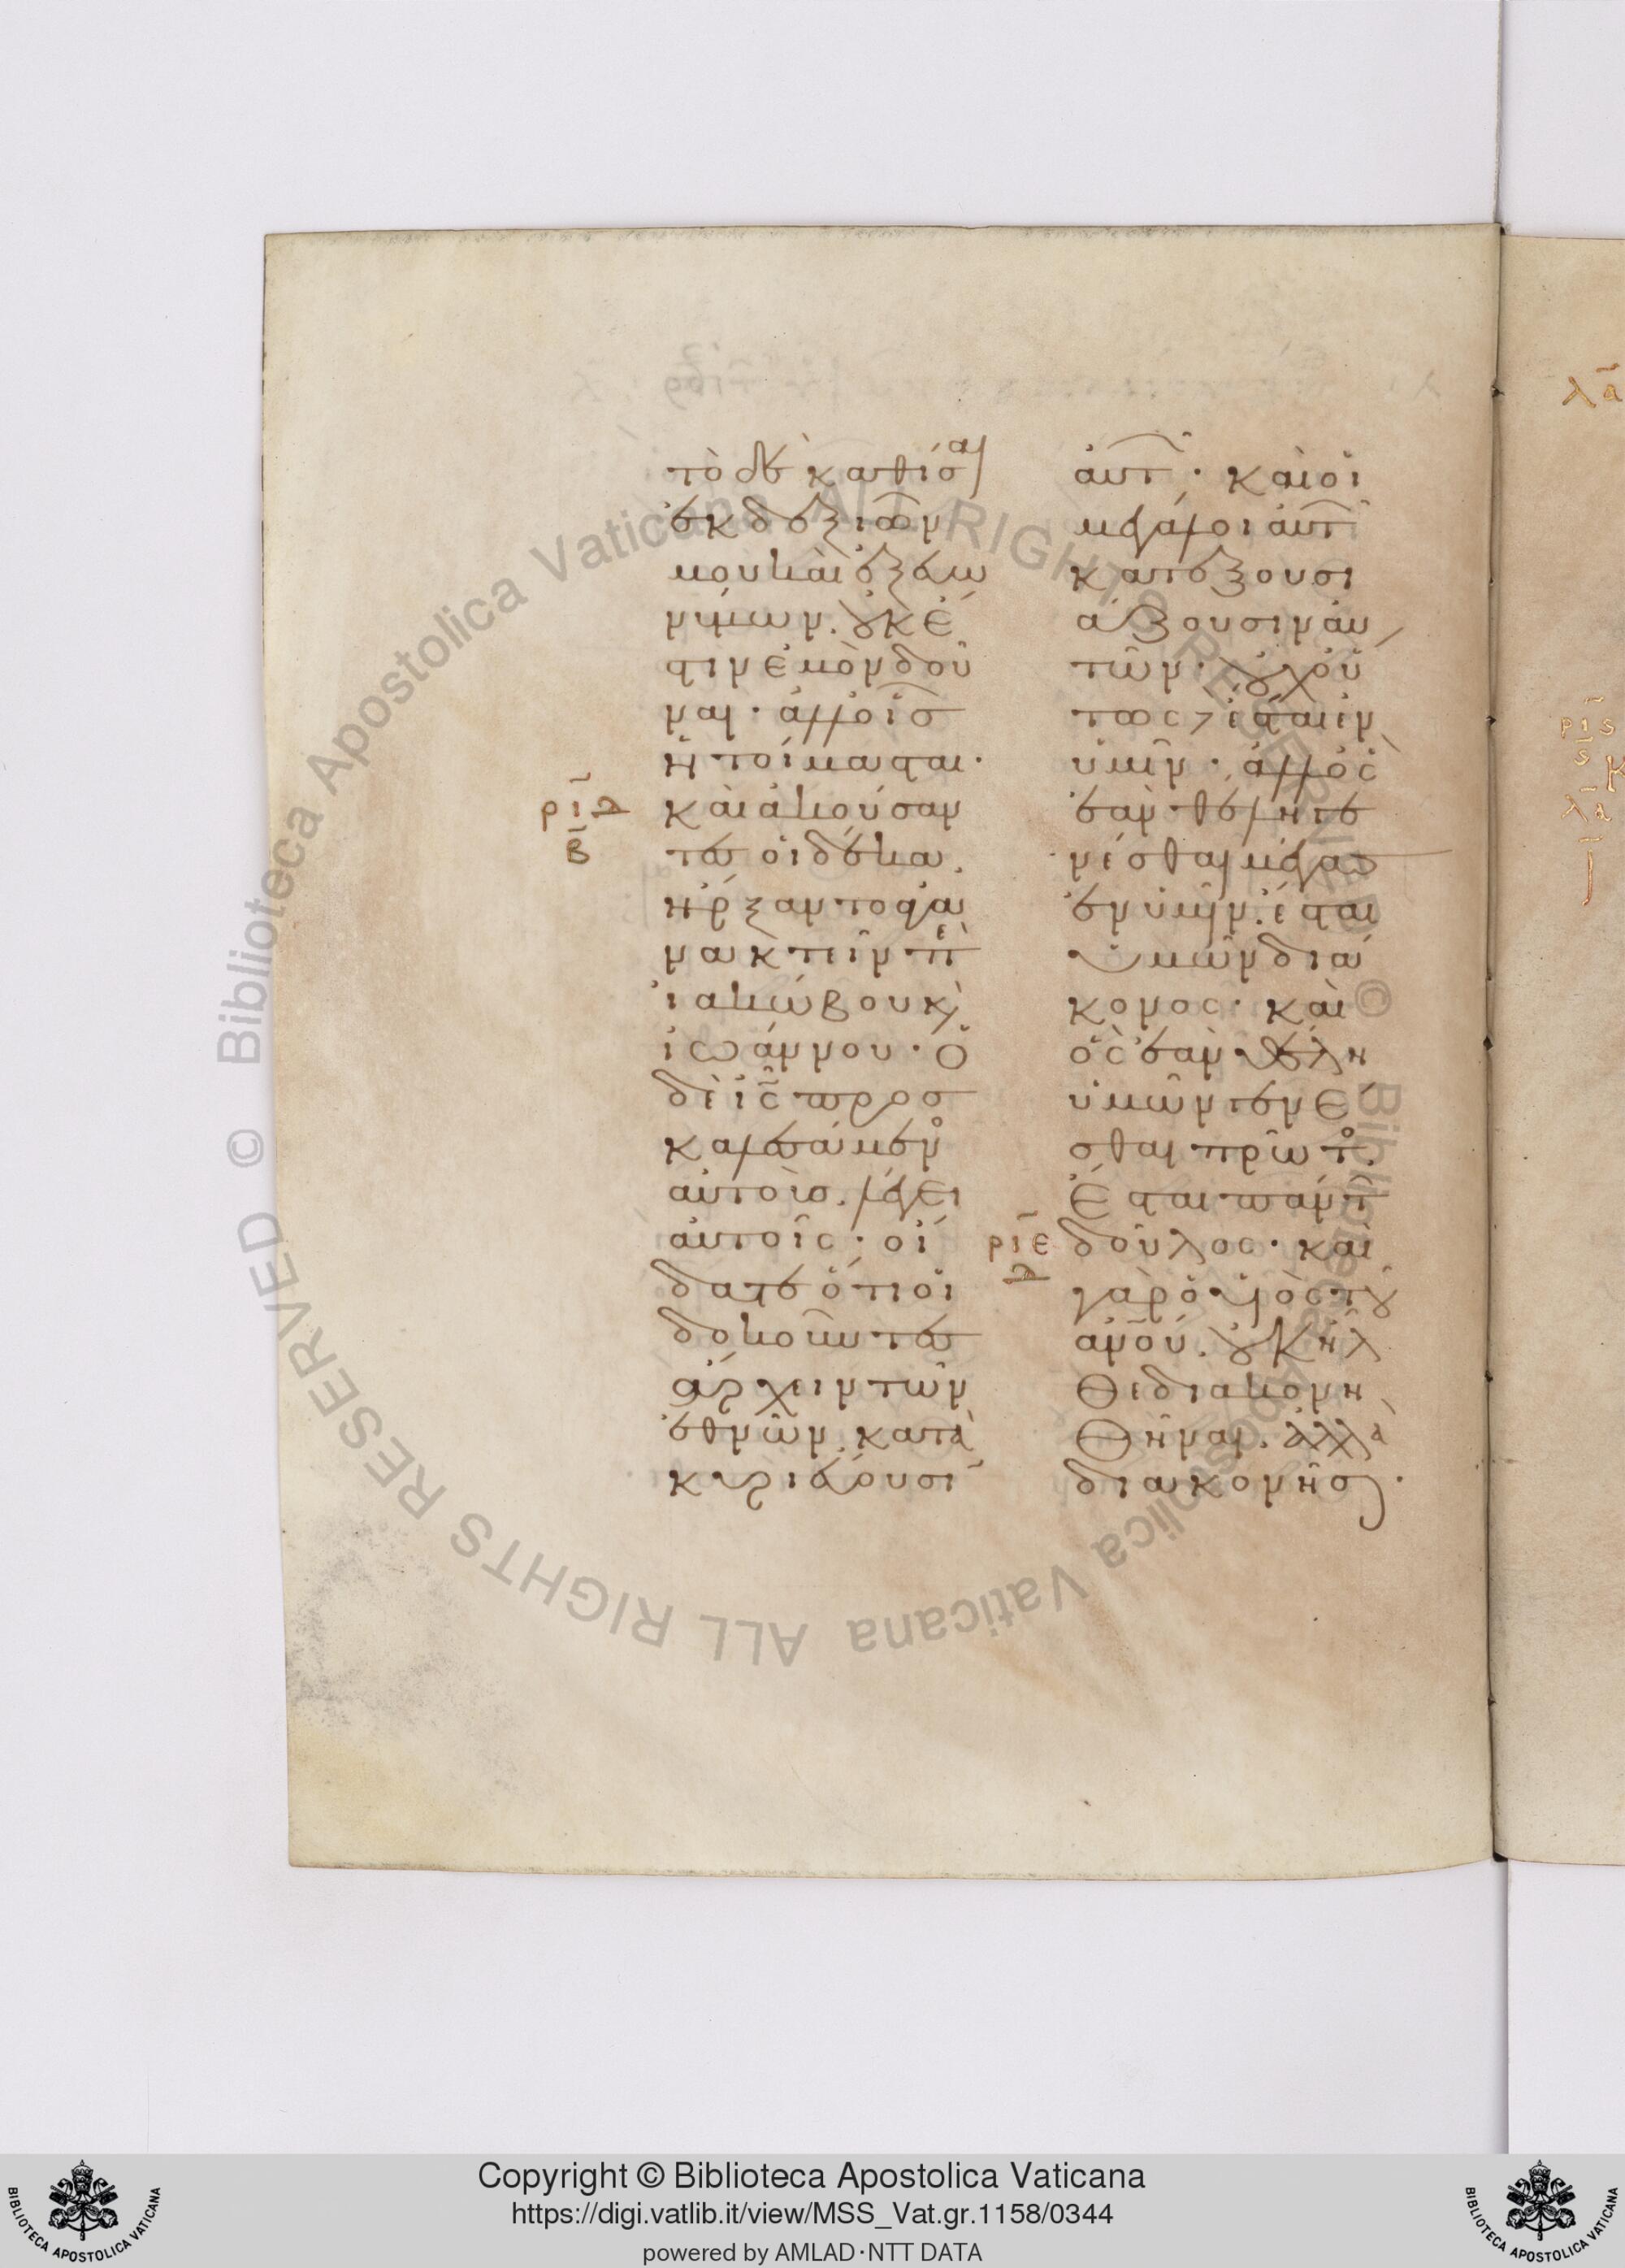 τὸ δὲ καθίσαι
ἐκ δεξιῶν
μου καὶ ἐξ εὐω
νύμων. οὐκ ἔ
στιν ἐμὸν δοῦ
ναι· ἀλλ' οἷσ
ἡτοίμασται·
ριδ καὶ ἀκούσαν
β τες οἱ δέκα.
ἤρξαντο ἀγα
νακτεῖν περὶ
ἰακώβου κὶ
ἰωάννου· ὁ
δὲ ις προσ
καλεσάμενος
αὐτοὺσ. λέγει
αὐτοῖς· οἴ
δατε ὅτι οἱ
δοκοῦντες
ἄρχειν τῶν
ἐθνῶν κατα
κυριεύουσιν
αὐτῶν· καὶ οἱ
μεγάλοι αὐτῶν
κατεξουσι
άζουσιν αὐ
τῶν. οὐχ οὕ
τως δέ ἐσται ἐν
ὑμῖν· ἀλλ' ὃς
ἐὰν θέλη γε
νέσθαι μέγας
ἐν ὑμῖν. ἔσται
ὑμῶν διά
κονος· καὶ
ὃς ἐὰν θέλη
ὑμῶν γενέ
σθαι πρῶτος.
ἔσται πάντων
ριε δοῦλος· καὶ
δ γὰρ ὁ υἱὸς τοῦ
ανου. οὐκ ἦλ
θε διακονη
θῆναι. ἀλλὰ
διακονῆσαι·
λα
ρις
ς
λα
Copyright © Biblioteca Apostolica Vaticana
https://digi.vatlib.it/view/MSS_Vat.gr.1158/0344
powered by AMLAD·NTT DATA
BIBLIOTECA APOSTOLICA VATICANA
BIBLIOTECA APOSTOLICA VATICANA
© Biblioteca Apostolica Vaticana ALL RIGHTS RESERVED
© Biblioteca Apostolica Vaticana ALL RIGHTS RESERVED